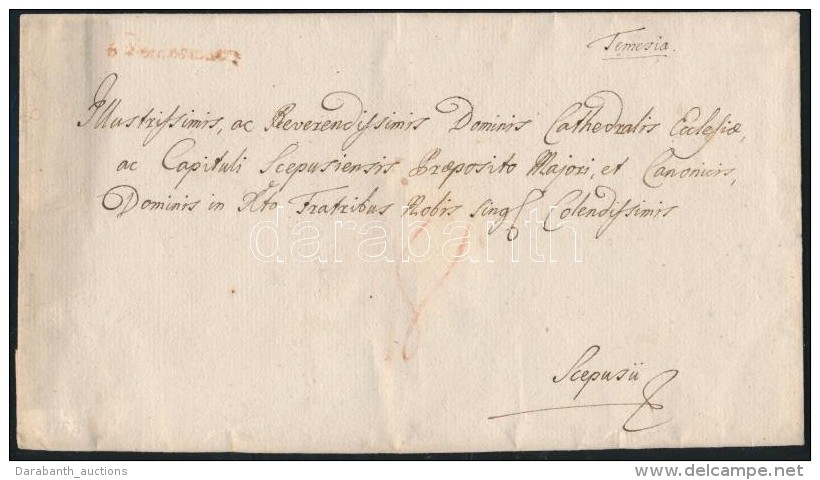 Temesia.
Illustrissimis, ac Reverendissimis Dominis Cathedralis Ecclesiæ,
ac Capituli Scepusiensis Præposito Majori, et Canonicis,
Dominis in Xto Fratribus Nobis Colendissimis
darabanth
Scepusii
Darabanth_auctions
www.delcampe.net